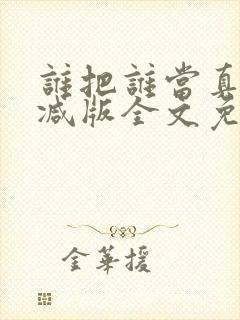 誰把誰當真
減版全文免
金華援